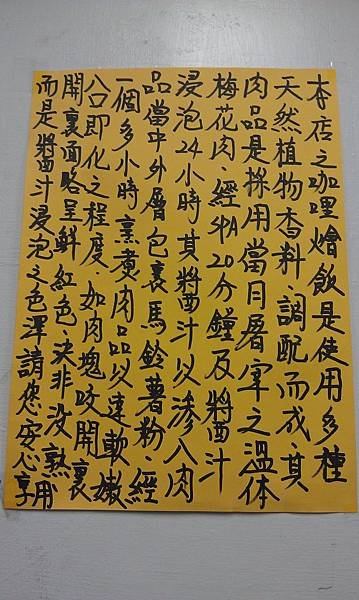 本店之咖哩燴飯是使用多種
天然植物香料、調配而成、其
肉品是採用當日屠宰之溫体
梅花肉、經SPA20分鐘及醬汁
浸泡24小時其醬汁以滲入肉
品當中外層包裹馬鈴薯粉、經
一個多小時烹煮肉品以達軟嫩
入口即化之程度、如肉塊咬開裏
開裏面略呈鮮紅色、決非没熟
而是醬汁浸泡之色澤請您安心享用